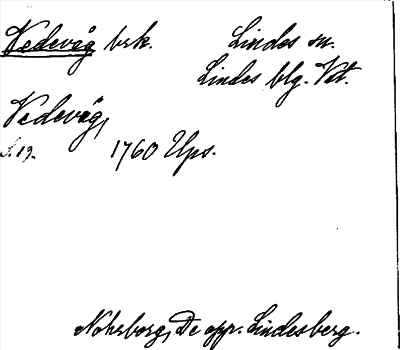 Vedevåg brk. Lindes sn.
Lindes blg. Vstm.
Vedevåg,
S. 19. 1760 Ups.
Nohrborg, De opp. Lindesberg.